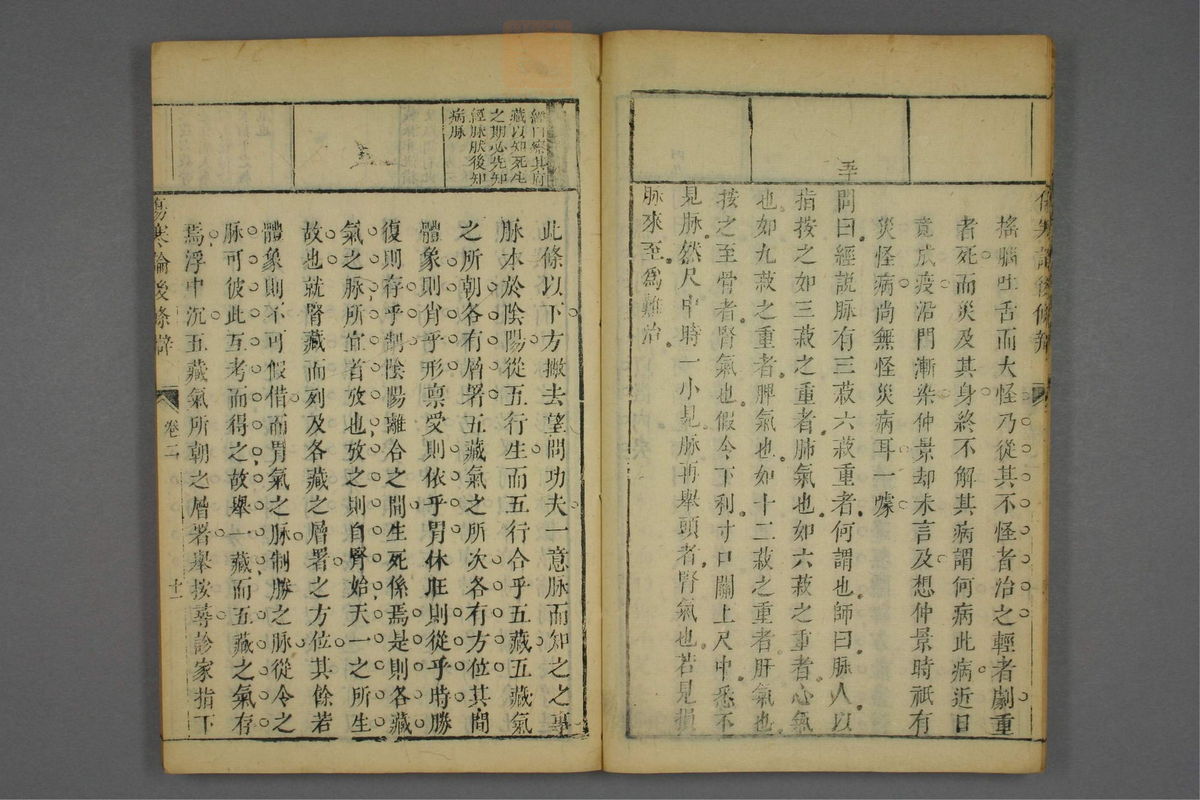 傷寒論後條辯
搖腦吐舌而大怪乃從其不怪者治之輕者劇重
者死而災及其身終不解其病謂何病此病近日
竟成疫沿門漸染仲景却未言及想仲景時祇有
災怪病尚無怪災病耳一噱
五
問曰經說脉有三菽六菽重者何謂也師曰脉人以
指按之如三菽之重者肺氣也如六菽之重者心氣
也如九菽之重者脾氣也如十二菽之重者肝氣也
按之至骨者腎氣也假令下利寸口關上尺中悉不
見脉然尺中時一小見脉再舉頭者腎氣也若見損
脉來至爲難治
經曰察其府
藏以知死生
之期必先知
經脉然後知
病脉
此條以下方撇去望問功夫一意脉而知之之事
脉本於陰陽從五行生而五行合乎五藏五藏氣
之所朝各有層署五藏氣之所次各有方位其間
體象則肖乎形禀受則依乎胃休旺則從乎時勝
復則存乎制陰陽離合之間生死係焉是則各藏
氣之脉所宜首攷也攷之則自腎始天一之所生
故也就腎藏而列及各藏之層署之方位其餘若
體象則不可假借而胃氣之脉制勝之脉從令之
脉可彼此互考而得之故舉一藏而五藏之氣存
焉浮中沉五藏氣所朝之層署舉按尋診家指下
傷寒論後條辯
卷二
十一